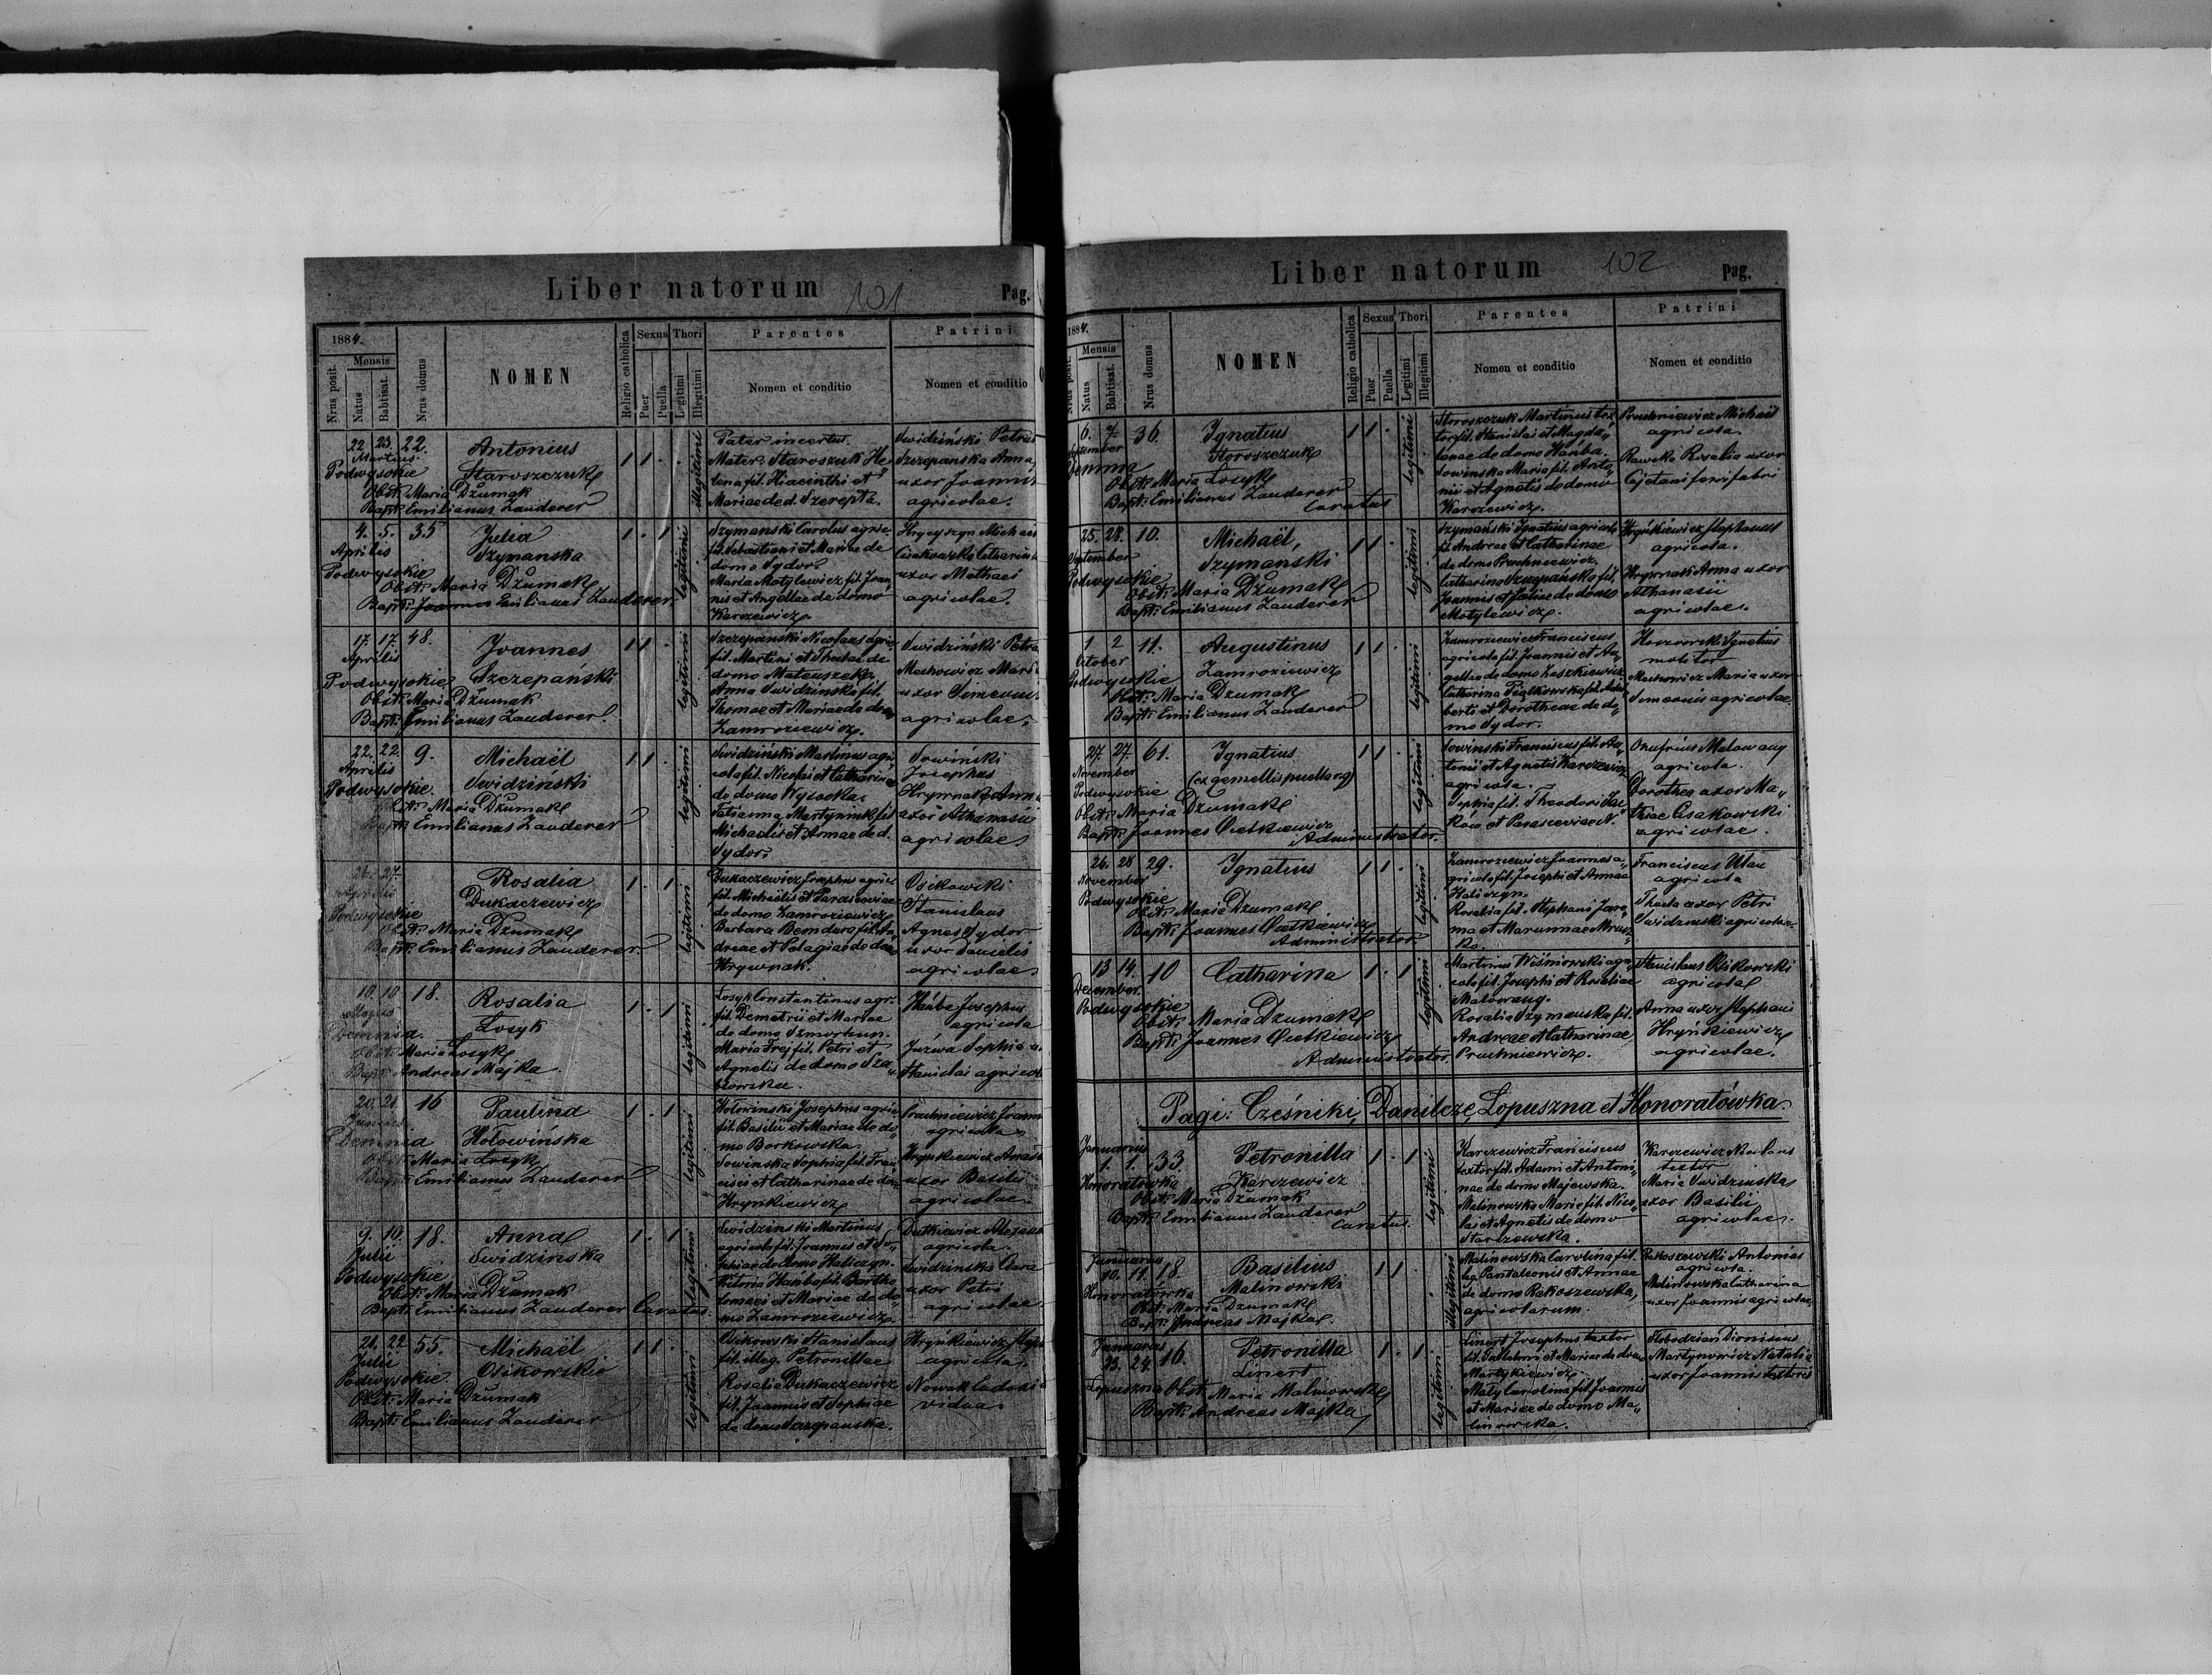 Liber natorum 101 Pag.
1884.
Mensis
Nrus posit.
Natus
Babtisat.
Nrus domus
NOMEN
Religio catholica
Sexus
Puer
Puella
Thori
Legitimi
Illegitimi
Parentes
Nomen et conditio
Patrini
Nomen et conditio
22 23 22.
Martius.
Podwysokie
Antonius
Staroszczuk
Obst: Maria Dżumak
Bapt: Emilianus Zauderer
1 1 . .
illegitimi
Pater incertus.
Mater: Staroszuk He
lena fil. Hiacinthi et
Mariae de d. Szerepta.
Swidziński Petrus
Szczepanska Anna,
uxor Joannis
agricolae.
4. 5. 35
Aprilis
Podwysokie
Julia
Szymanska
Obst: Maria Dżumak
Bapt: Joannes Emilianus Zauderer
1 . 1
legitimi
Szymanski Carolus agric.
fil. Sebastiani et Mariae de
domo Sydor.
Maria Motylewicz fil. Joan,,
nis et Angellae de domo
Karczewicz.
Hrycyszyn Michael
Cisakowska Catharina
uxor Mathaei
agricolae.
17. 17. 48.
Aprilis
Podwysokie
Joannes
Szczepański
Obst: Maria Dżumak
Bapt: Emilianus Zauderer.
1 1 .
legitimi
Szczepański Nicolaus agric.
fil. Martini et Theclae de
domo Mateuszek.
Anna Swidzinska fil.
Thomae et Mariae de domo
Zamroziewicz.
Swidziński Petrus
Machowicz Maria
uxor Simeonis
agricolae.
22. 22. 9.
Aprilis
Podwysokie.
Michaël
Swidziński
Obst: Maria Dżumak
Bapt: Emilianus Zauderer
1 1 .
legitimi
Swidziński Martinus agri
cola fil. Nicolai et Catharinae
de domo Wysocka.
Tatianna Martynnski fil.
Michaelis et Annae de d.
Sydor.
Sowiński
Josephus
Hrywnak Anna
uxor Athanasii
agricolae
26. 27.
Aprilis
Podwysokie
Rosalia
Dukaczewicz
Obst: Maria Dżumak
Bapt: Emilianus Zauderer
1 . 1
legitimi
Dukaczewicz Josephus agric.
fil. Michaelis et Parascevae
de domo Zamroziewicz
Barbara Bemdura fil. An
dreae et Pelagiae de domo
Hrywnak.
Osikowski
Stanislaus
Agnes Sydor
uxor Danielis
agricolae
10. 10 18.
Majus
Demnia.
Rosalia
Łosyk
Obst: Maria Łosyk
Bapt: Andreas Majka.
1 . 1
legitimi
Łosyk Constantinus agr.
fil. Demetrii et Mariae
Maria Frej fil. Petri et
Agnetis de domo
Hańba Josephus
agricola
Juzwa Sophia u.
Stanislai agricol
20. 21. 16
Junius
Demnia
Paulina
Hołowińska
Obst: Maria Łosyk
Bapt: Emilianus Zauderer
1 . 1
legitimi
Hołowinski Josephus agric.
fil. Basilii et Mariae de do,,
mo Borkowska
Sowinska Sophia fil. Fran
cisci et Catharinae de do,,
Hrynkiewicz
Prachniewicz Joannes
agricola
uxor Basilii
agricolae
9. 10. 18.
Julii
Podwysokie
Anna
Swidzinska
Obst: Maria Dżumak
Bapt: Emilianus Zauderer Curatus.
1 . 1
legitimi
Swidzinski Martinus
agricola fil. Joannis et So,,
phiae de domo Haliczyn.
Victoria Hańba fil. Bartho
lomaei et Mariae de do,,
mo Zamroziewicz.
agricola.
Swidzinska Clara
uxor Petri
agricolae.
21. 22 55.
Julii
Podwysokie
Michaël
Osikowski
Obst: Maria Dżumak
Bapt: Emilianus Zauderer
1 1 .
legitimi
Osikowski Stanislaus
fil. illeg. Petronillae
Rosalia Dukaczewicz
fil. Joannis et Sophiae
de domo Szczepanska.
Hryńkiewicz
agricola.
Nowak
vidua.
Liber natorum 102 Pag.
1884.
Mensis
Nrus posit.
Natus
Babtisat.
Nrus domus
NOMEN
Religio catholica
Sexus
Puer
Puella
Thori
Legitimi
Illegitimi
Parentes
Nomen et conditio
Patrini
Nomen et conditio
6. 7. 36.
September
Demnia
Ignatius
Storoszczuk
Obst: Maria Łosyk
Bapt: Emilianus Zauderer
Curatus
1 1 .
legitimi
Storoszczuk Martinus tex,,
tor fil. Stanislai et Magda,,
lenae de domo Hańba.
Sowinska Maria fil. Anto,,
nii et Agnetis de domo
Karczewicz.
Prachniewicz Michaël
agricola.
Rawska Rosalia uxor
Cajetani ferrifabri
25. 28. 10.
September
Podwysokie
Michaël,
Szymanski
Obst: Maria Dżumak
Bapt: Emilianus Zauderer
1 1 .
legitimi
Szymański Ignatius agricola
fil. Andreae et Catharinae
de domo Prachniewicz.
Catharina Szczepańska fil.
Joannis et Juliae de domo
Motylewicz.
Hryńkiewicz Stephanus
agricola.
Hrywnak Anna uxor
Athanasii
agricolae.
1 2 11.
October
Podwysokie
Augustinus
Zamroziewicz
Obst: Maria Dżumak
Bapt: Emilianus Zauderer
1 1 .
legitimi
Zamroziewicz Franciscus
agricola fil. Joannis et An,,
gellae de domo Leszkiewicz
Catharina Fiałkowska fil. Adal
berti et Dorotheae de do,,
mo Sydor.
Ignatius
molitor
Machowicz Maria uxor
Simeonis agricolae.
27. 27. 61.
November
Podwysokie
Ignatius
(ex gemellis puella 09)
Obst: Maria Dżumak
Bapt: Joannes Cietkiewicz
Administrator.
1 1 .
legitimi
Sowinski Franciscus fil. An,,
tonii et Agnetis Karczewicz
agricola.
Sophia fil. Theodori
et Parasceviae N.
Onufrius Małowaug
agricola.
Dorothea uxor Ma,,
thiae Cisakowski
agricolae.
26. 28 29.
November
Podwysokie
Ignatius
Obst: Maria Dżumak
Bapt: Joannes Cietkiewicz
Administrator
1 1 .
legitimi
Zamroziewicz Joannes a,,
gricola fil. Josephi et Annae
Haliczyn.
Rosalia fil. Stephani Jare,,
ma et Mariannae
Franciscus
agricola
Thecla uxor Petri
Swidzinski agricolae.
13 14. 10
December.
Podwysokie
Catharina
Obst: Maria Dżumak
Bapt: Joannes Cietkiewicz
Administrator
1 . 1
legitimi
Martinus Wiśniowski agri,,
cola fil. Josephi et Rosaliae
Małowaug.
Rosalia Szymanska fil.
Andreae et Catharinae
Prachniewicz.
Stanislaus Osikowski
agricola
Anna uxor Stephani
Hryńkiewicz
agricolae.
Pagi: Cześniki, Danilcze, Łopuszna et Honoratówka.
Januarius
1. 1. 33.
Honoratówka
Petronilla
Karczewicz
Obst: Maria Dżumak
Bapt: Emilianus Zauderer
Curatus.
1 . 1
legitimi
Karczewicz Franciscus
textor fil. Adami et Antoni,,
nae de domo Majewska.
Malinowska Maria fil. Nico,,
lai et Agnetis de domo
Starzewska.
Karczewicz Nicolaus
textor
Maria Swidzinska
uxor Basilii
agricolae.
Januarius
10. 11. 18.
Honoratówka
Basilius
Malinowski
Obst: Maria Dżumak
Bapt: Andreas Majka.
1 1 .
illegitimi
Malinowska Carolina fil.
leg. Pantaleonis et Annae
de domo Rakoszewska,
agricolarum.
Rakoszewski Antonius
agricola.
Malinowska Catharina
uxor Joannis agricolae.
Januarius
23. 24. 16.
Łopuszna
Petronilla
Linert
Obst: Maria Malinowska
Bapt: Andreas Majka
1 . 1
legitimi
Linert Josephus textor
et Mariae de domo
Martykiewicz
Mały Carolina fil. Joannis
et Mariae de domo Ma,,
linowska.
Słobodzian Dionisius
Martynowicz Natalia
uxor Joannis textoris